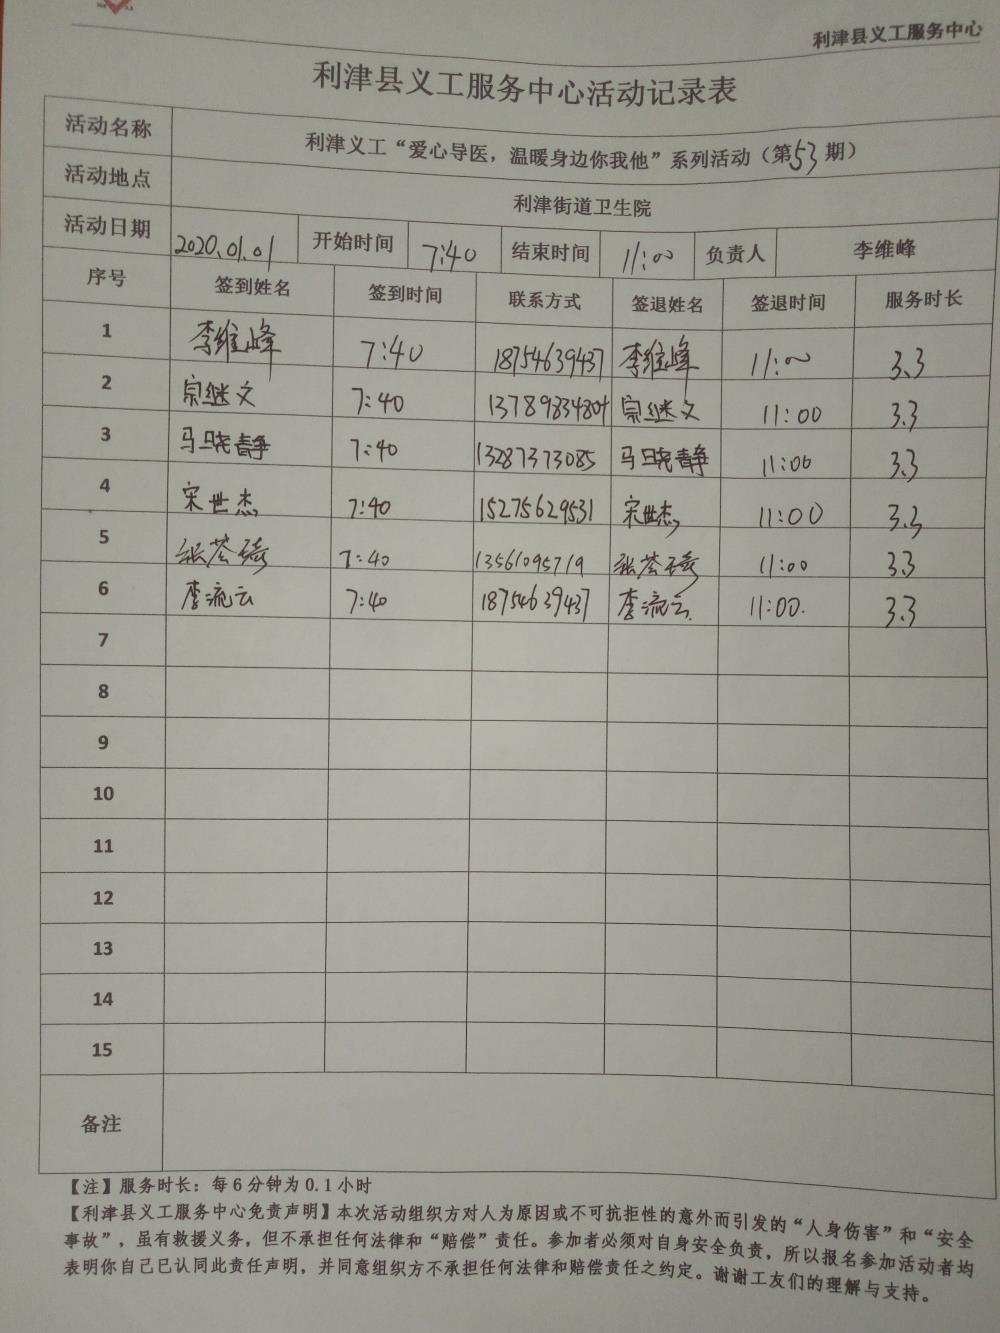 利津县义工服务中心
利津县义工服务中心活动记录表
活动名称 利津义工“爱心导医，温暖身边你我他”系列活动（第53期）
活动地点 利津街道卫生院
活动日期 2020.01.01 开始时间 7:40 结束时间 11:00 负责人 李维峰
序号 签到姓名 签到时间 联系方式 签退姓名 签退时间 服务时长
1 李维峰 7:40 18754639437 李维峰 11:00 3.3
2 宗继文 7:40 13789834804 宗继文 11:00 3.3
3 马晓静 7:40 13287373085 马晓静 11:00 3.3
4 宋世杰 7:40 15275629531 宋世杰 11:00 3.3
5 7:40 13561095719 11:00 3.3
6 李流云 7:40 18754639437 李流云 11:00. 3.3
7
8
9
10
11
12
13
14
15
备注
【注】服务时长：每6分钟为0.1小时
【利津县义工服务中心免责声明】本次活动组织方对人为原因或不可抗拒性的意外而引发的“人身伤害”和“安全
事故”，虽有救援义务，但不承担任何法律和“赔偿”责任。参加者必须对自身安全负责，所以报名参加活动者均
表明你自己已认同此责任声明，并同意组织方不承担任何法律和赔偿责任之约定。谢谢工友们的理解与支持。